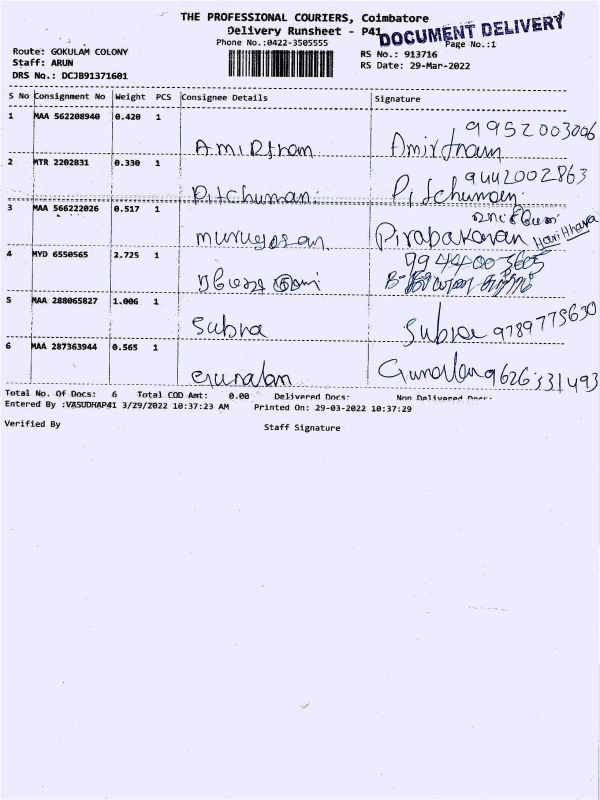 THE PROFESSIONAL COURIERS, Coimbatore
Delivery Runsheet - P41
DOCUMENT DELIVERY
Phone No.:0422-3505555
Page No.:1
Route: GOKULAM COLONY
RS No.: 913716
Staff: ARUN
RS Date: 29-Mar-2022
DRS No.: DCJB91371601
S No Consignment No Weight PCS Consignee Details Signature
9952003006
1 MAA 562208940 0.420 1
Amirtham Amirtham
2 MTR 2202831 0.330 1 9442002863
Pitchumani Pitchumani
3 MAA 566222026 0.517 1
Murugesan Pirabakaran Harithhara
4 MYD 6550565 2.725 1 9944003605
5 MAA 288065827 1.006 1
Subra Subra 9789775630
6 MAA 287363944 0.565 1
Gunalan Gunalan 9626331493
Total No. Of Docs: 6 Total COD Amt: 0.00 Delivered Docs: Non Delivered Docs:
Entered By :VASUDHAP41 3/29/2022 10:37:23 AM Printed On: 29-03-2022 10:37:29
Verified By Staff Signature